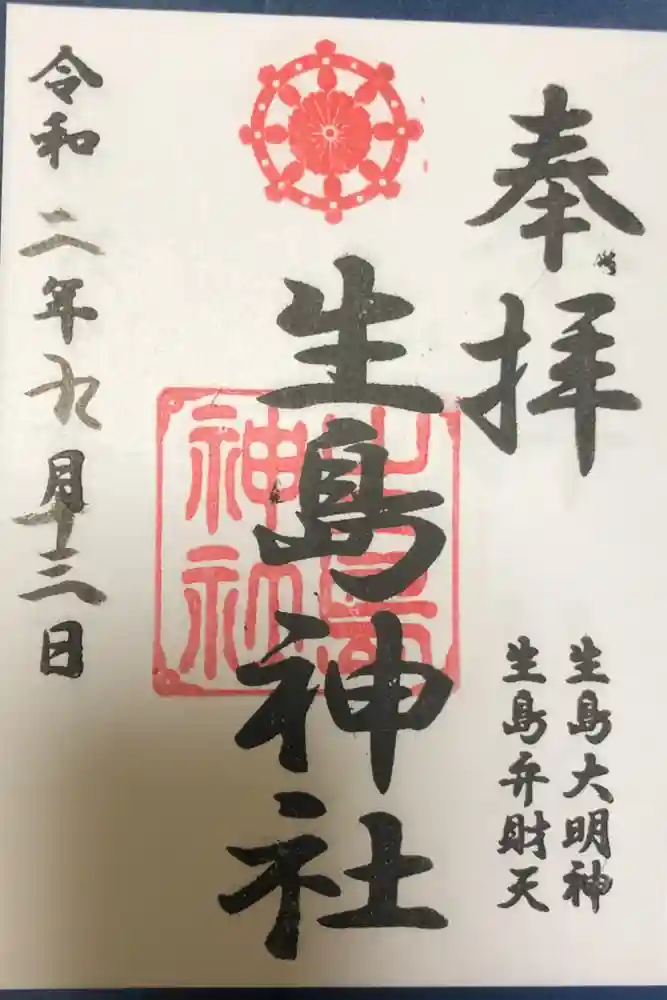 奉拝
生島大明神
生島弁財天
生島神社
生島神社
令和二年九月十三日